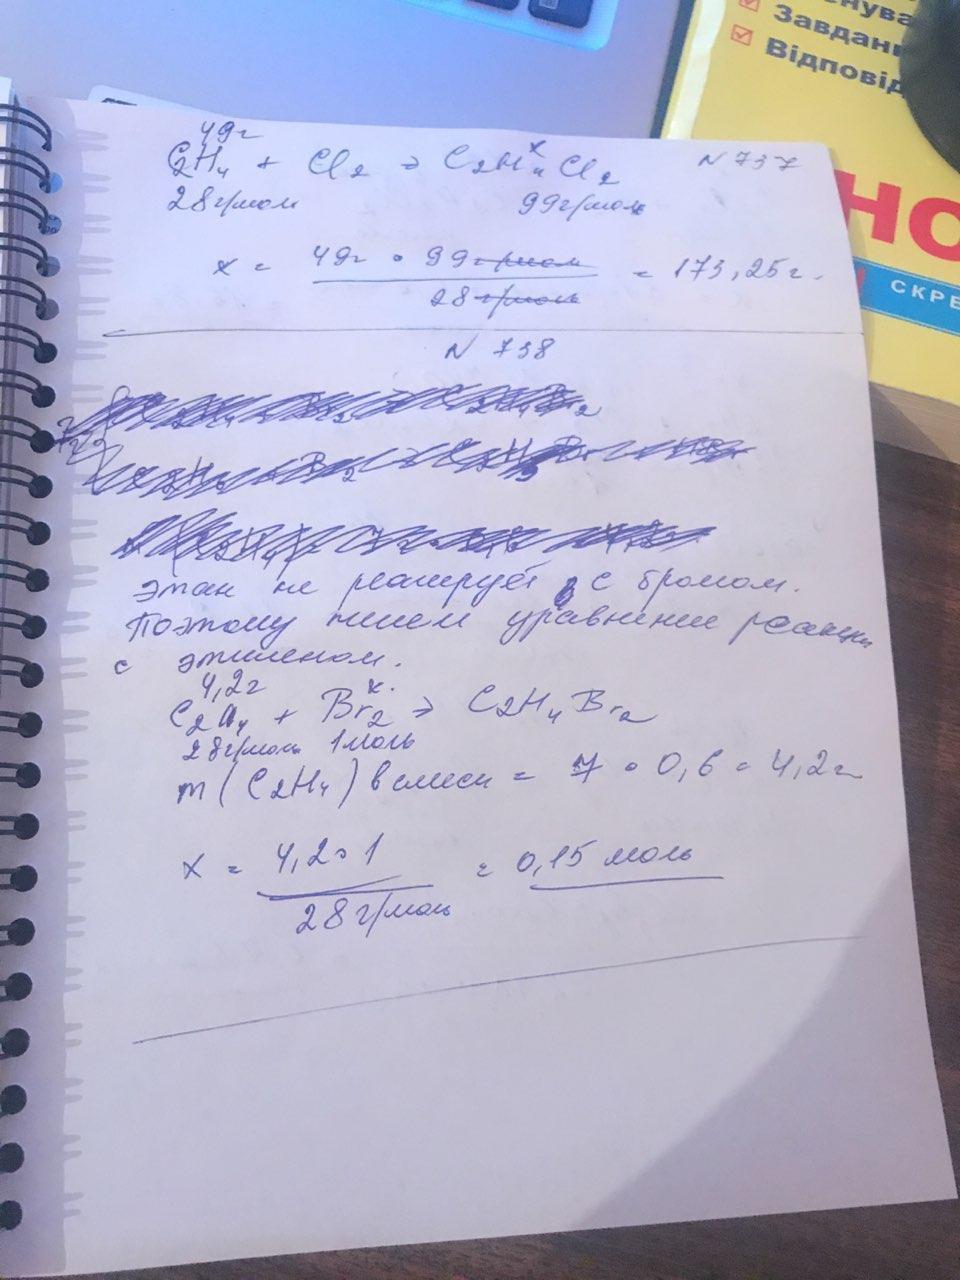 Завдан
Відповід
НО
СКРЕ
49г
C2H4 + Cl2 → C2H4Cl2 x N 737
28г/мол 99г/моль
x = 49г • 99г/моль / 28г/моль = 173,25г.
N 738
этан не реагирует с бромом.
Поэтому пишем уравнение реакции
с этиленом.
4,2г x.
C2H4 + Br2 → C2H4Br2
28г/моль 1моль
m(C2H4) в смеси = 7 • 0,6 = 4,2г
x = 4,2•1 / 28г/моль = 0,15 моль